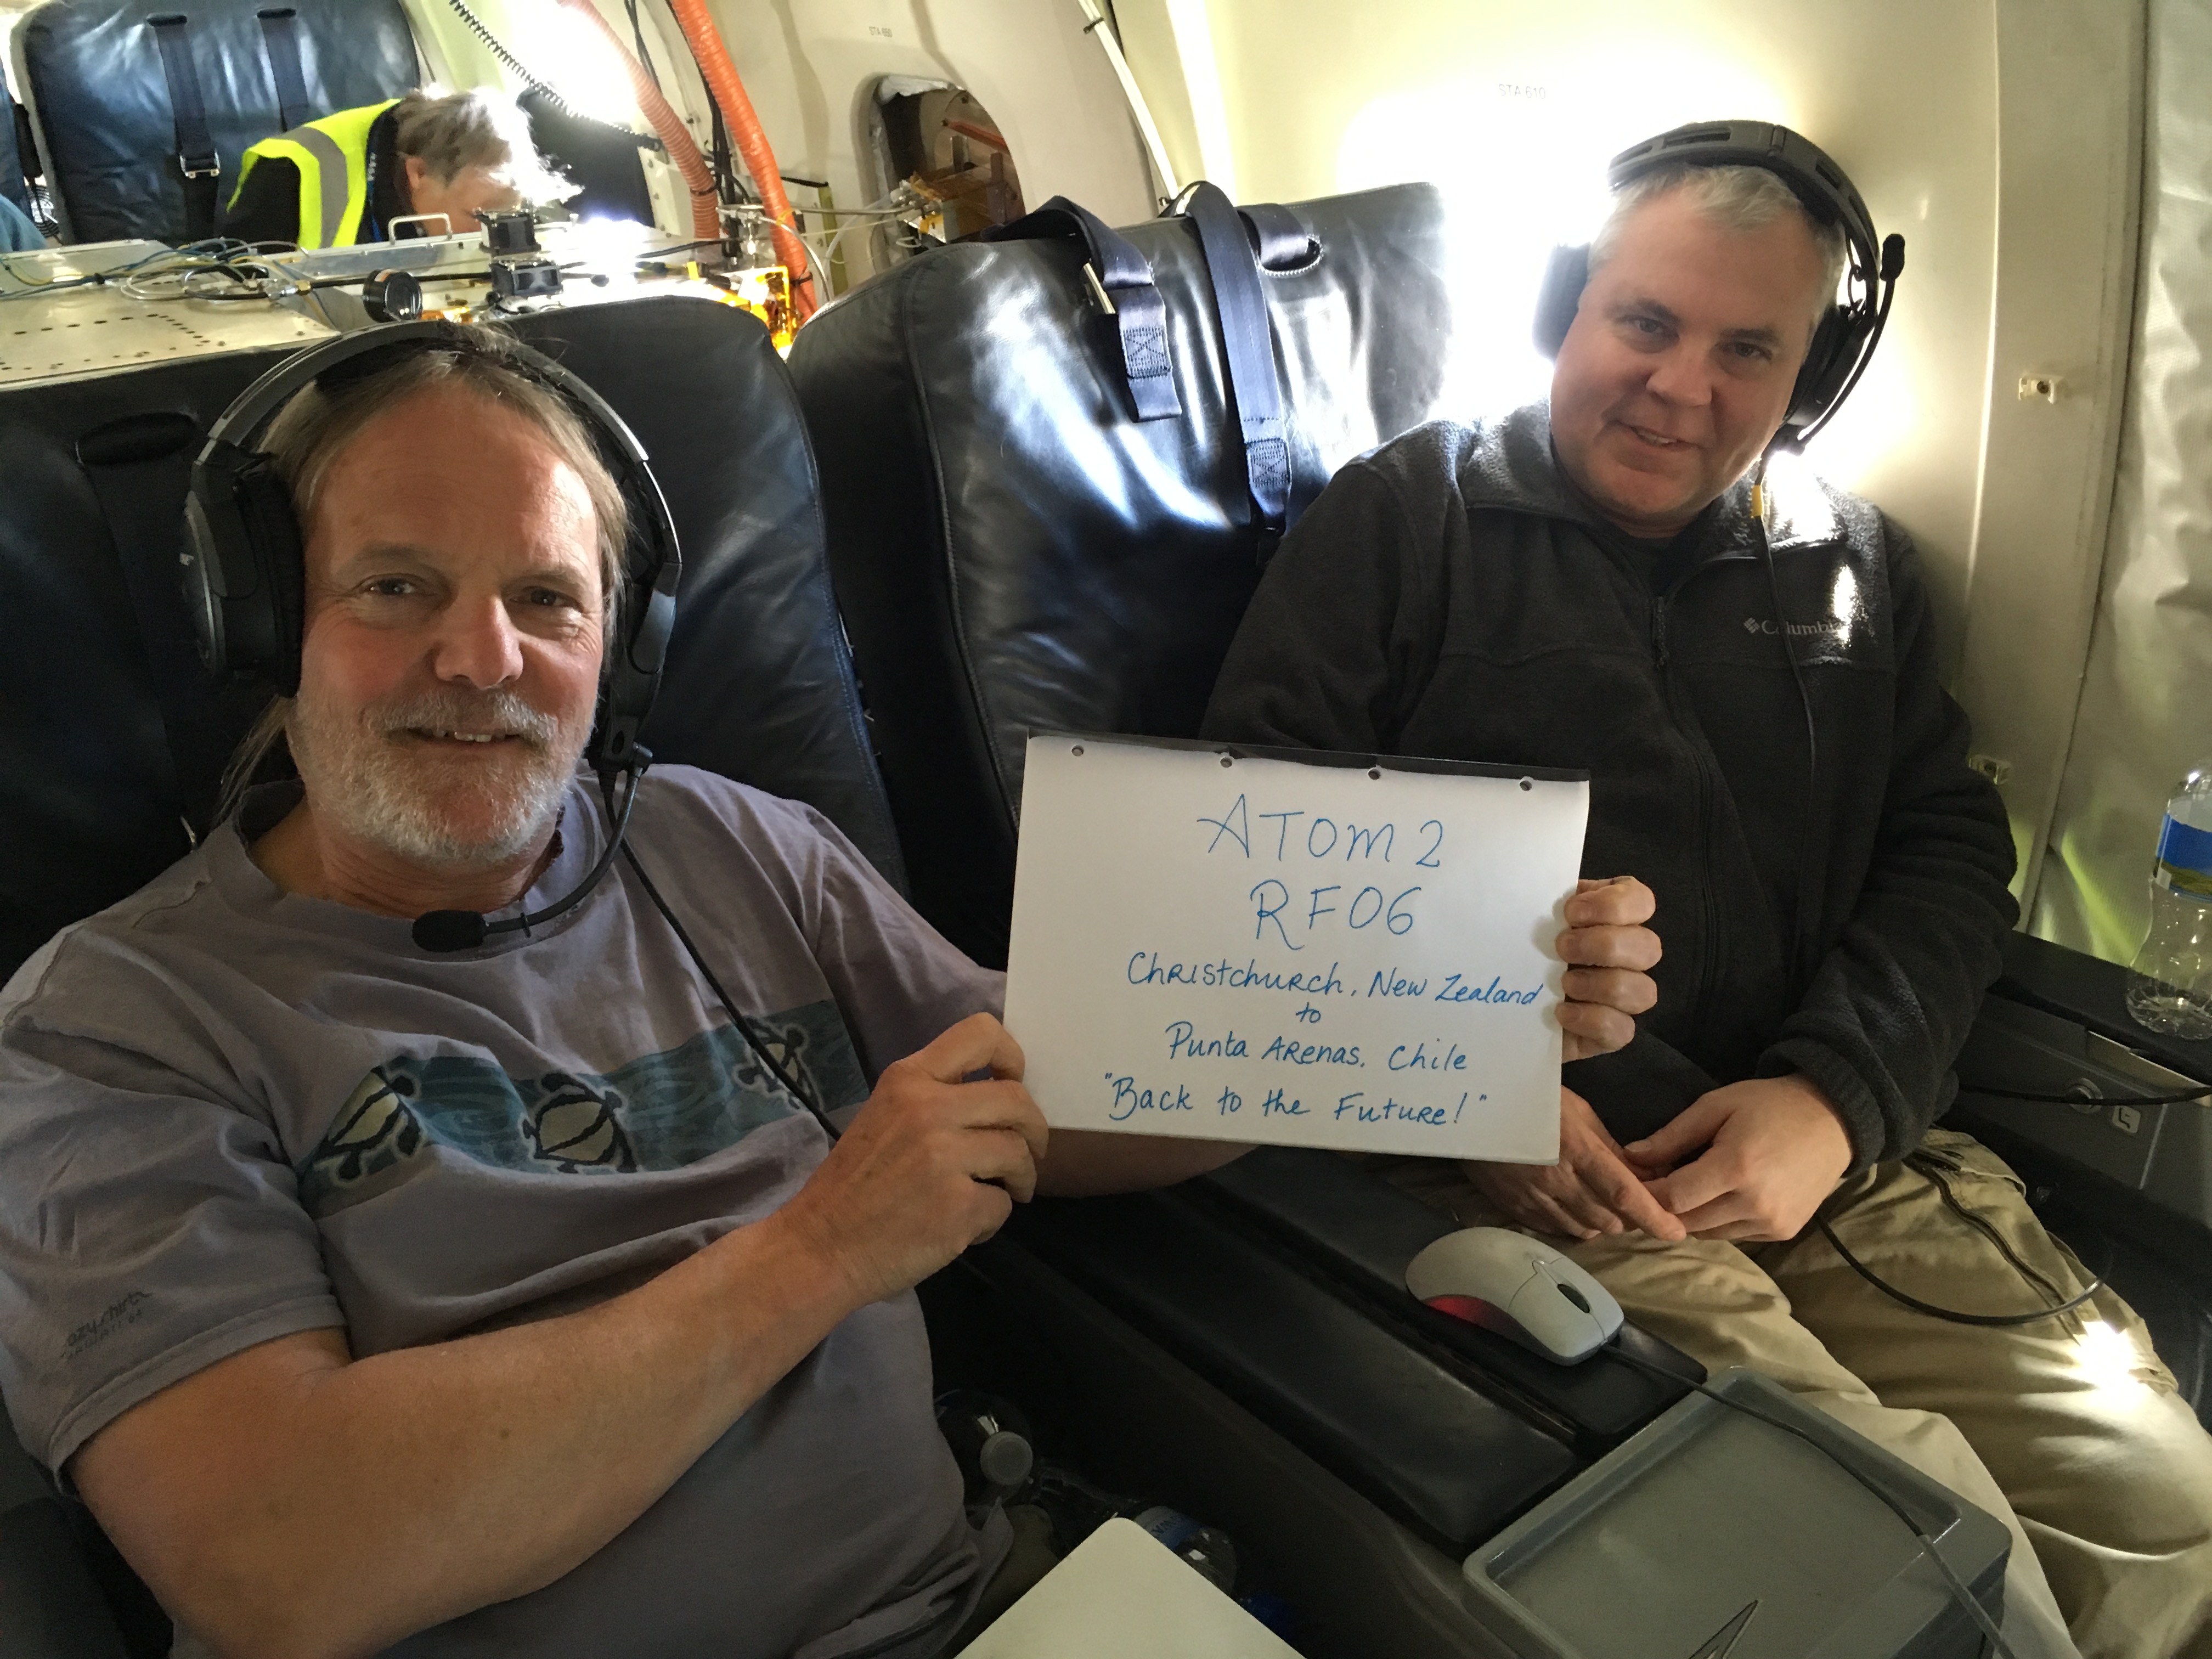 STA 610
Columbia
ATOM 2
RF06
Christchurch, New Zealand
to
Punta Arenas, Chile
"Back to the Future!"